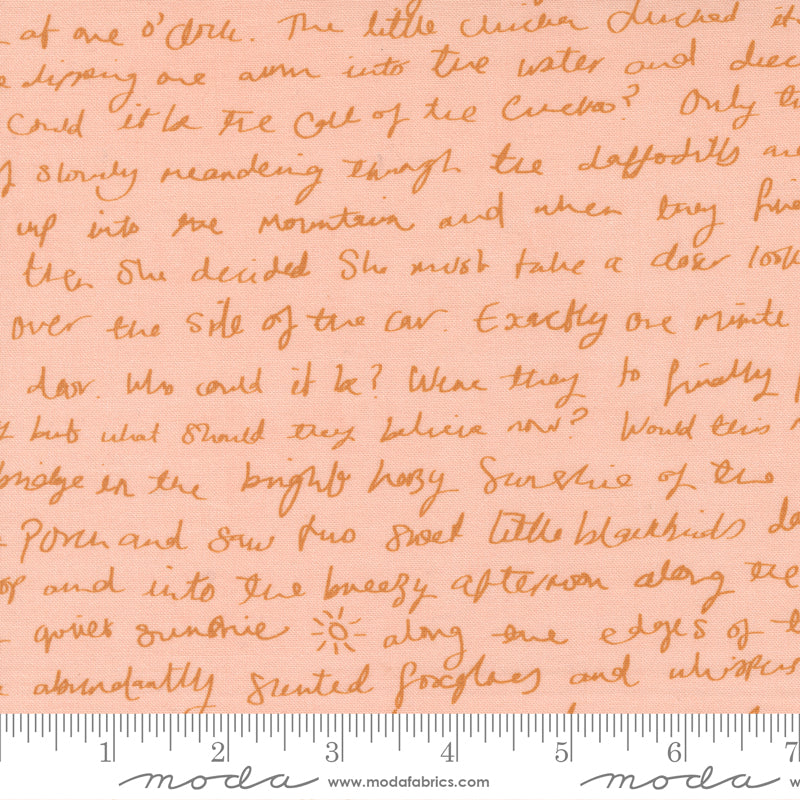 at one o'clock. The little chicken clucked it
dipping one arm into the water and
could it be the call of the cuckoo? Only
slowly meandering through the daffodils are
up into the mountain and when they
then she decided She must take a closer look
over the side of the car. Exactly one minute
door. Who could it be? Were they to finally
but what should they believe now? Would this
bridge in the bright hazy Sunshine of the
Porch and saw two sweet little blackbirds
and into the breezy afternoon along the
quiet sunshine along the edges of
abundantly scented foxgloves and whispers
1 2 3 4 5 6 7
moda www.modafabrics.com moda